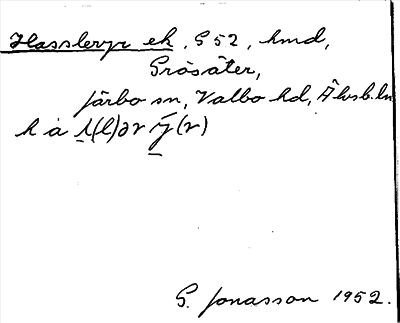 Hassleryr ek, G 52, hmd,
Gräsäter,
Järbo sn, Valbo hd, Älvsb. ln
h a l(l)ər ȳ(r)
G. Jonasson 1952.